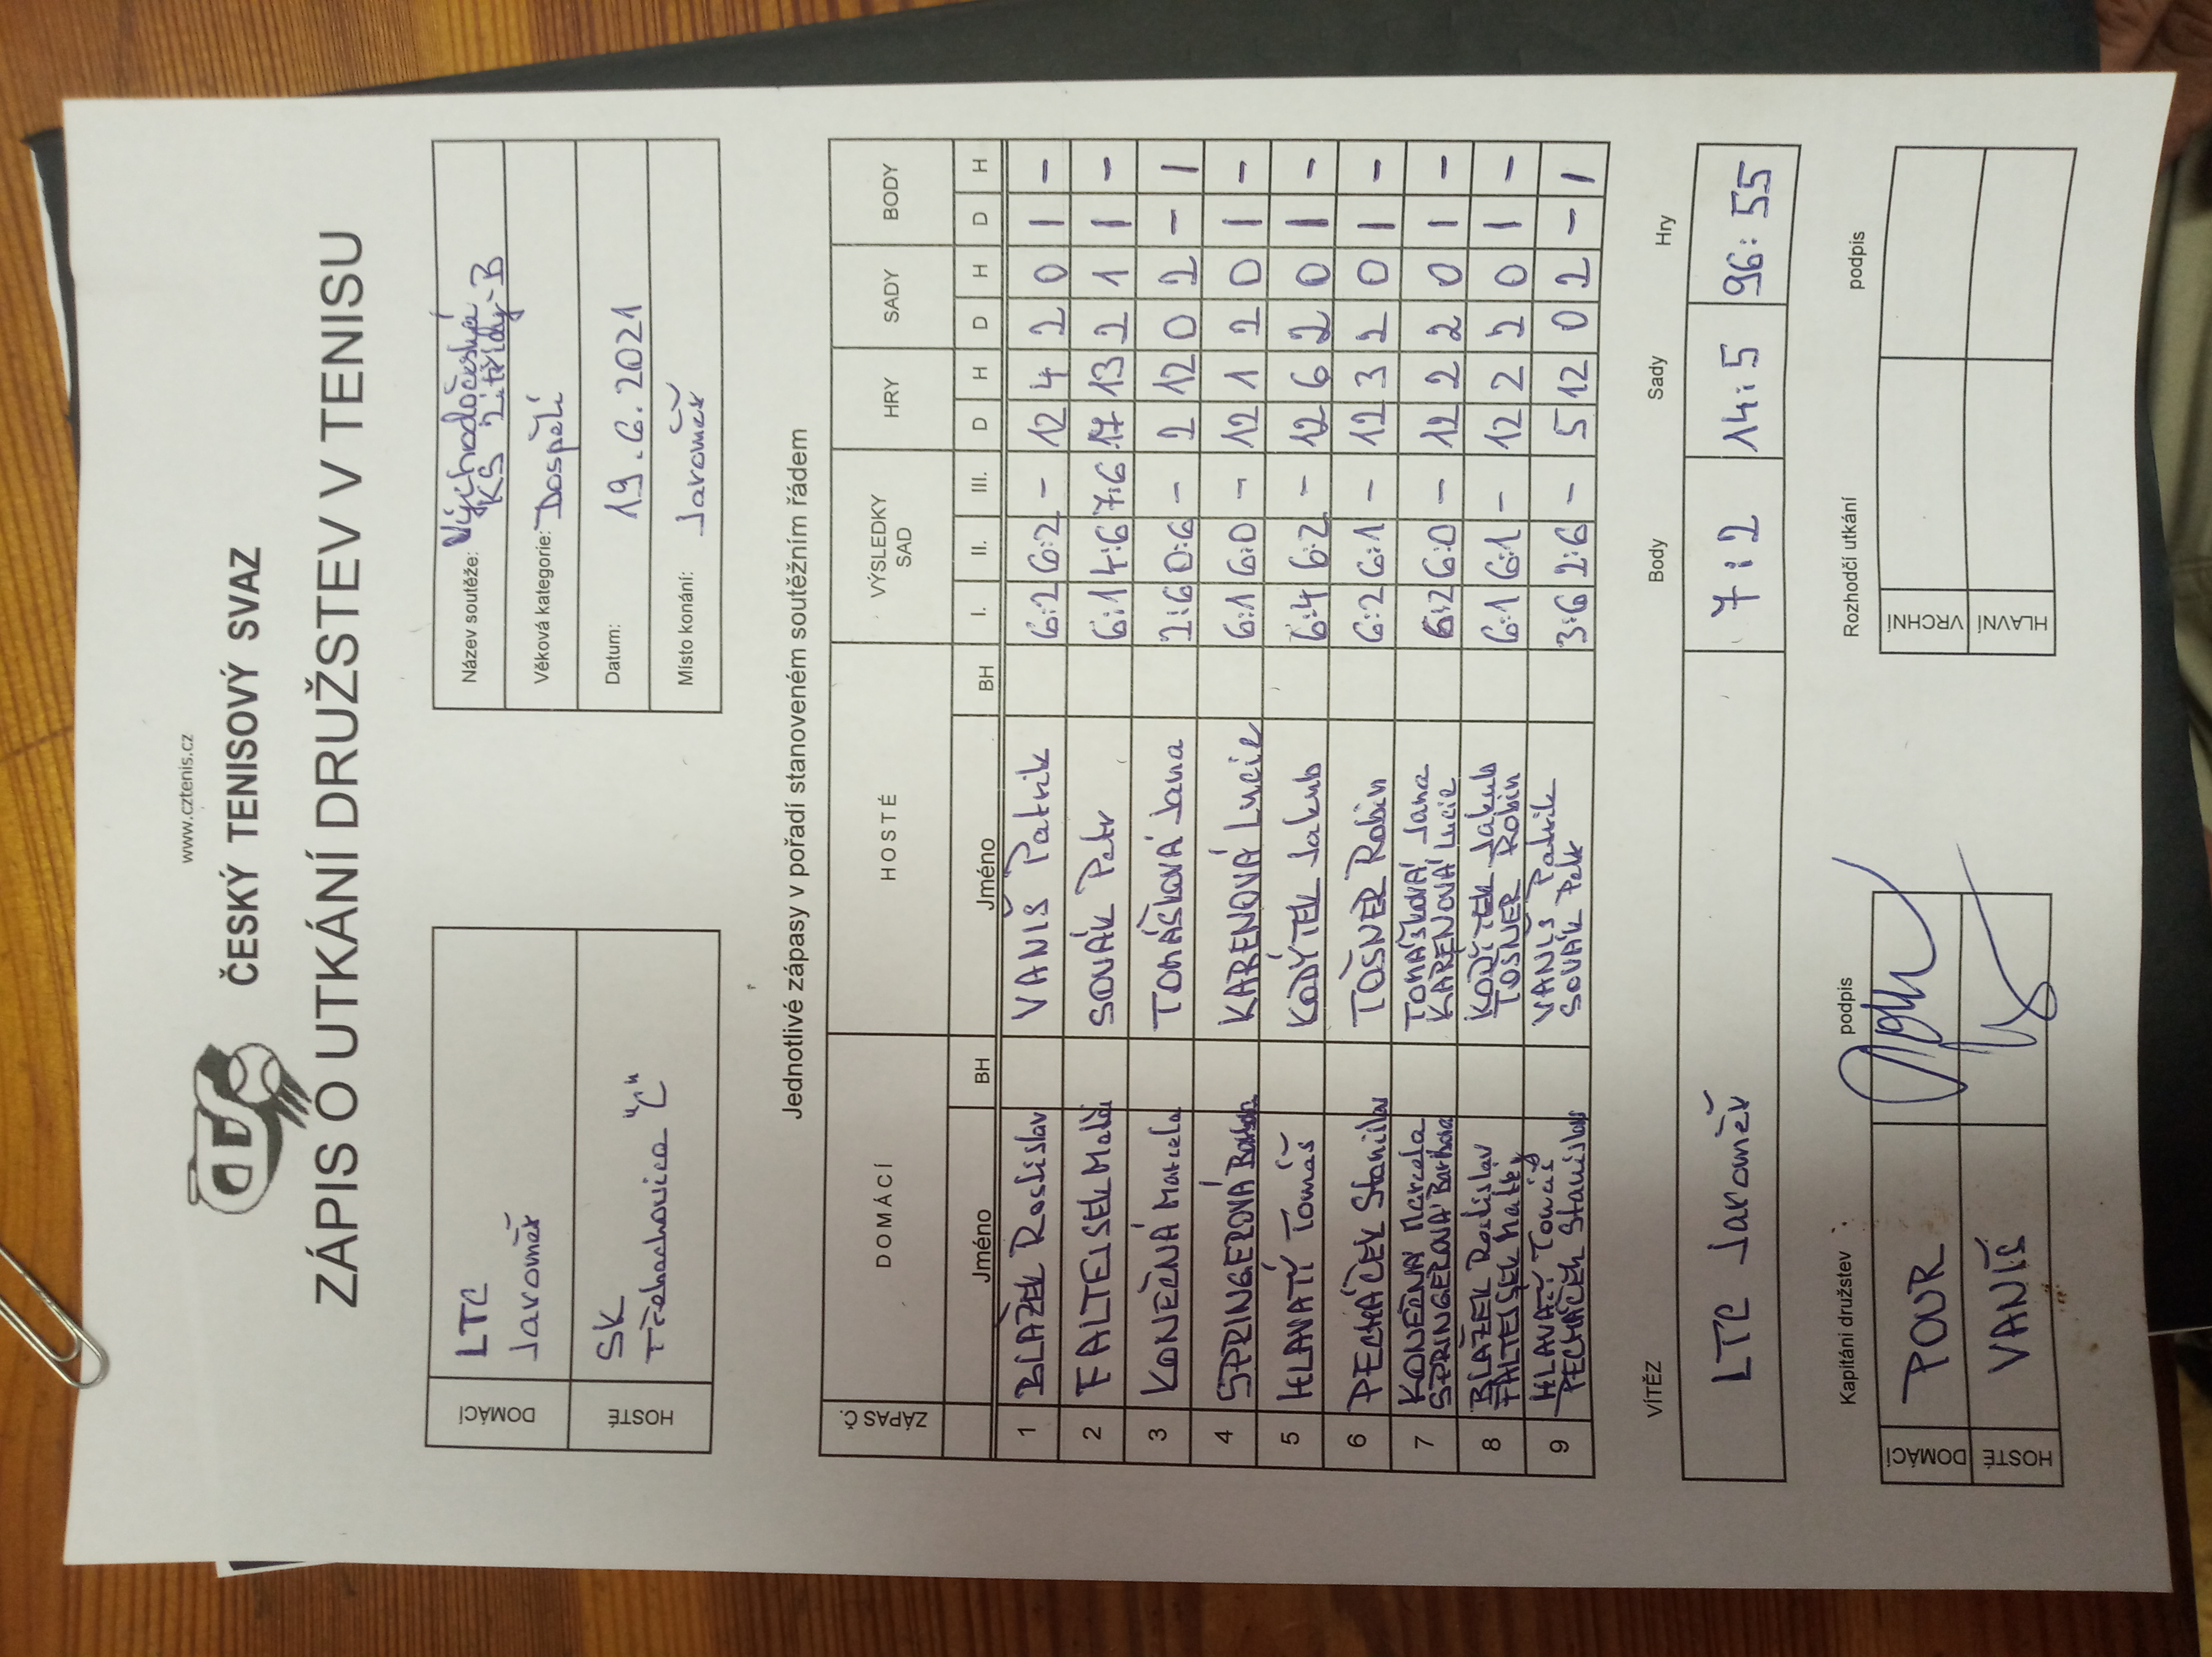 www.cztenis.cz
ČESKÝ TENISOVÝ SVAZ
ZÁPIS O UTKÁNÍ DRUŽSTEV V TENISU
DOMÁCÍ LTC
Jaroměř
HOSTÉ SK
Třebechovice "C"
Název soutěže: Východočeská
KS 2. třídy - B
Věková kategorie: Dospělí
Datum: 19.6.2021
Místo konání: Jaroměř
Jednotlivé zápasy v pořadí stanoveném soutěžním řádem
ZÁPAS Č. DOMÁCÍ HOSTÉ VÝSLEDKY SAD HRY SADY BODY
Jméno BH Jméno BH I. II. III. D H D H D H
1 BLAŽEK Rostislav VANIŠ Patrik 6:2 6:2 - 12 4 2 0 1 -
2 FALTEJSEK Matěj SOVÁK Petr 6:1 4:6 7:6 17 13 2 1 1 -
3 KONEČNÁ Marcela TOMÁŠKOVÁ Jana 2:6 0:6 - 2 12 0 2 - 1
4 SPRINGEROVÁ Barbora KARENOVÁ Lucie 6:1 6:0 - 12 1 2 0 1 -
5 HLAVATÍ Tomáš KODÝTEK Jakub 6:4 6:2 - 12 6 2 0 1 -
6 PECHÁČEK Stanislav TOŠNER Robin 6:2 6:1 - 12 3 2 0 1 -
7 KONEČNÁ Marcela TOMÁŠKOVÁ Jana 6:2 6:0 - 12 2 2 0 1 -
SPRINGEROVÁ Barbora KARENOVÁ Lucie
8 BLAŽEK Rostislav KODÝTEK Jakub 6:1 6:1 - 12 2 2 0 1 -
FALTEJSEK Matěj TOŠNER Robin
9 HLAVATÍ Tomáš VANIŠ Patrik 3:6 2:6 - 5 12 0 2 - 1
PECHÁČEK Stanislav SOVÁK Petr
VÍTĚZ Body Sady Hry
LTC Jaroměř 7:2 14:5 96:55
Kapitáni družstev podpis Rozhodčí utkání podpis
DOMÁCÍ POUR VRCHNÍ
HOSTÉ VANIŠ HLAVNÍ